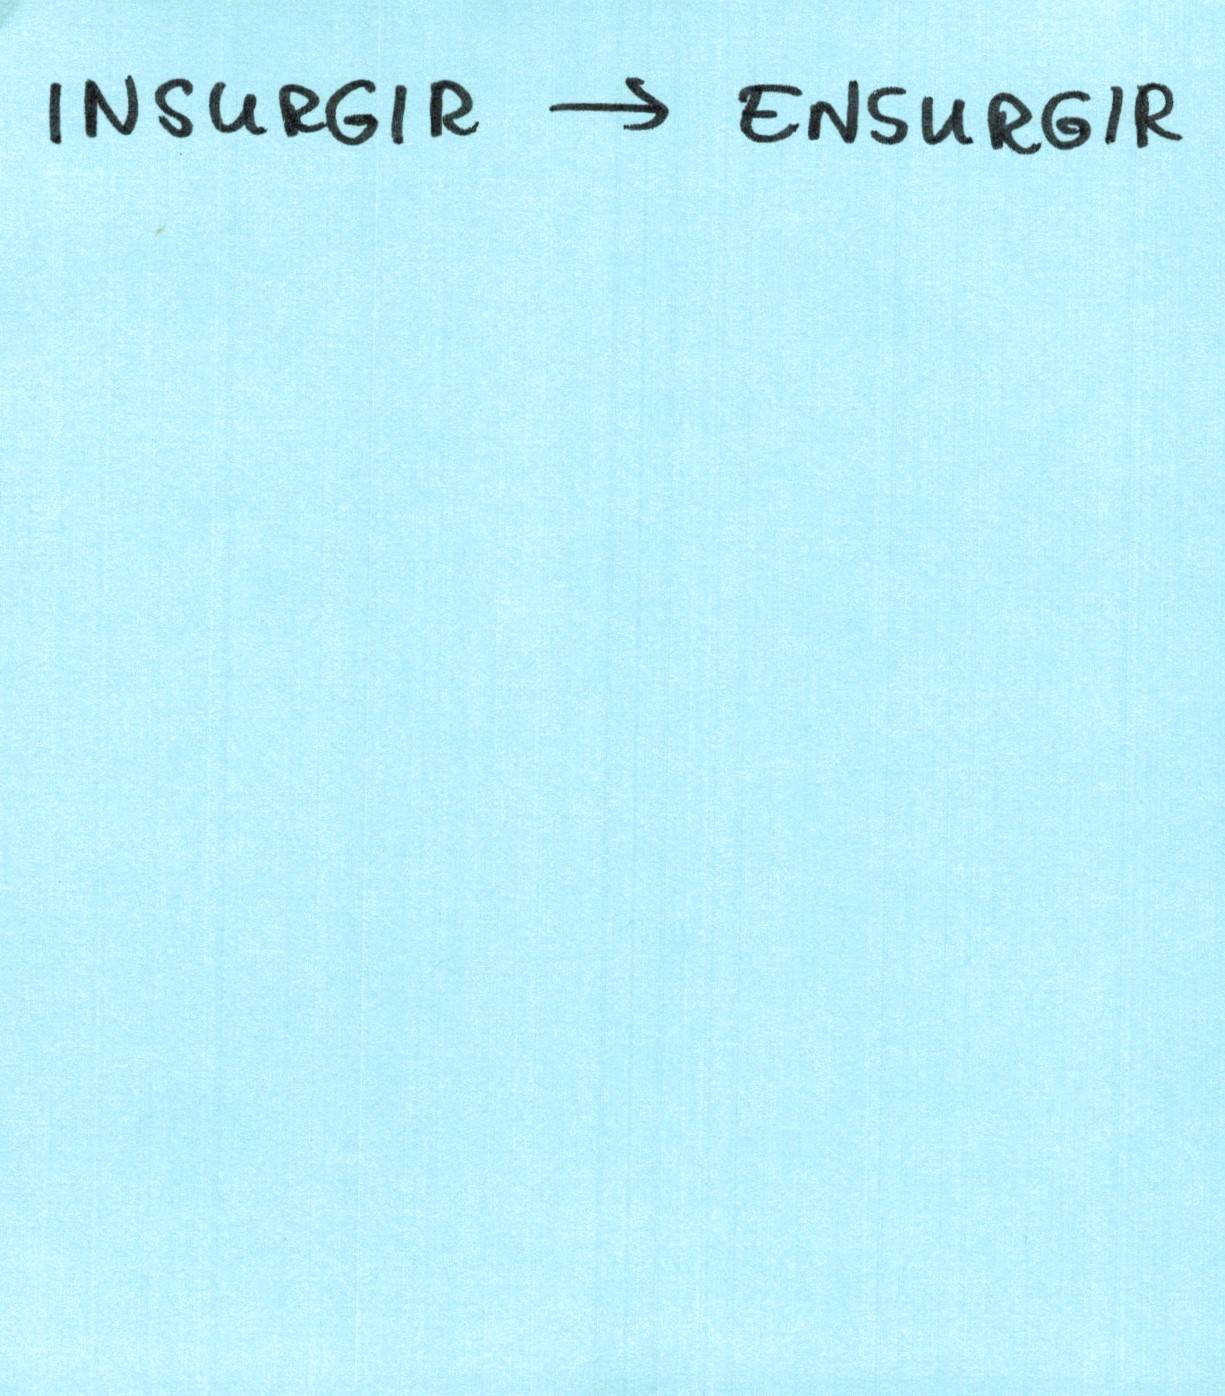 INSURGIR → ENSURGIR